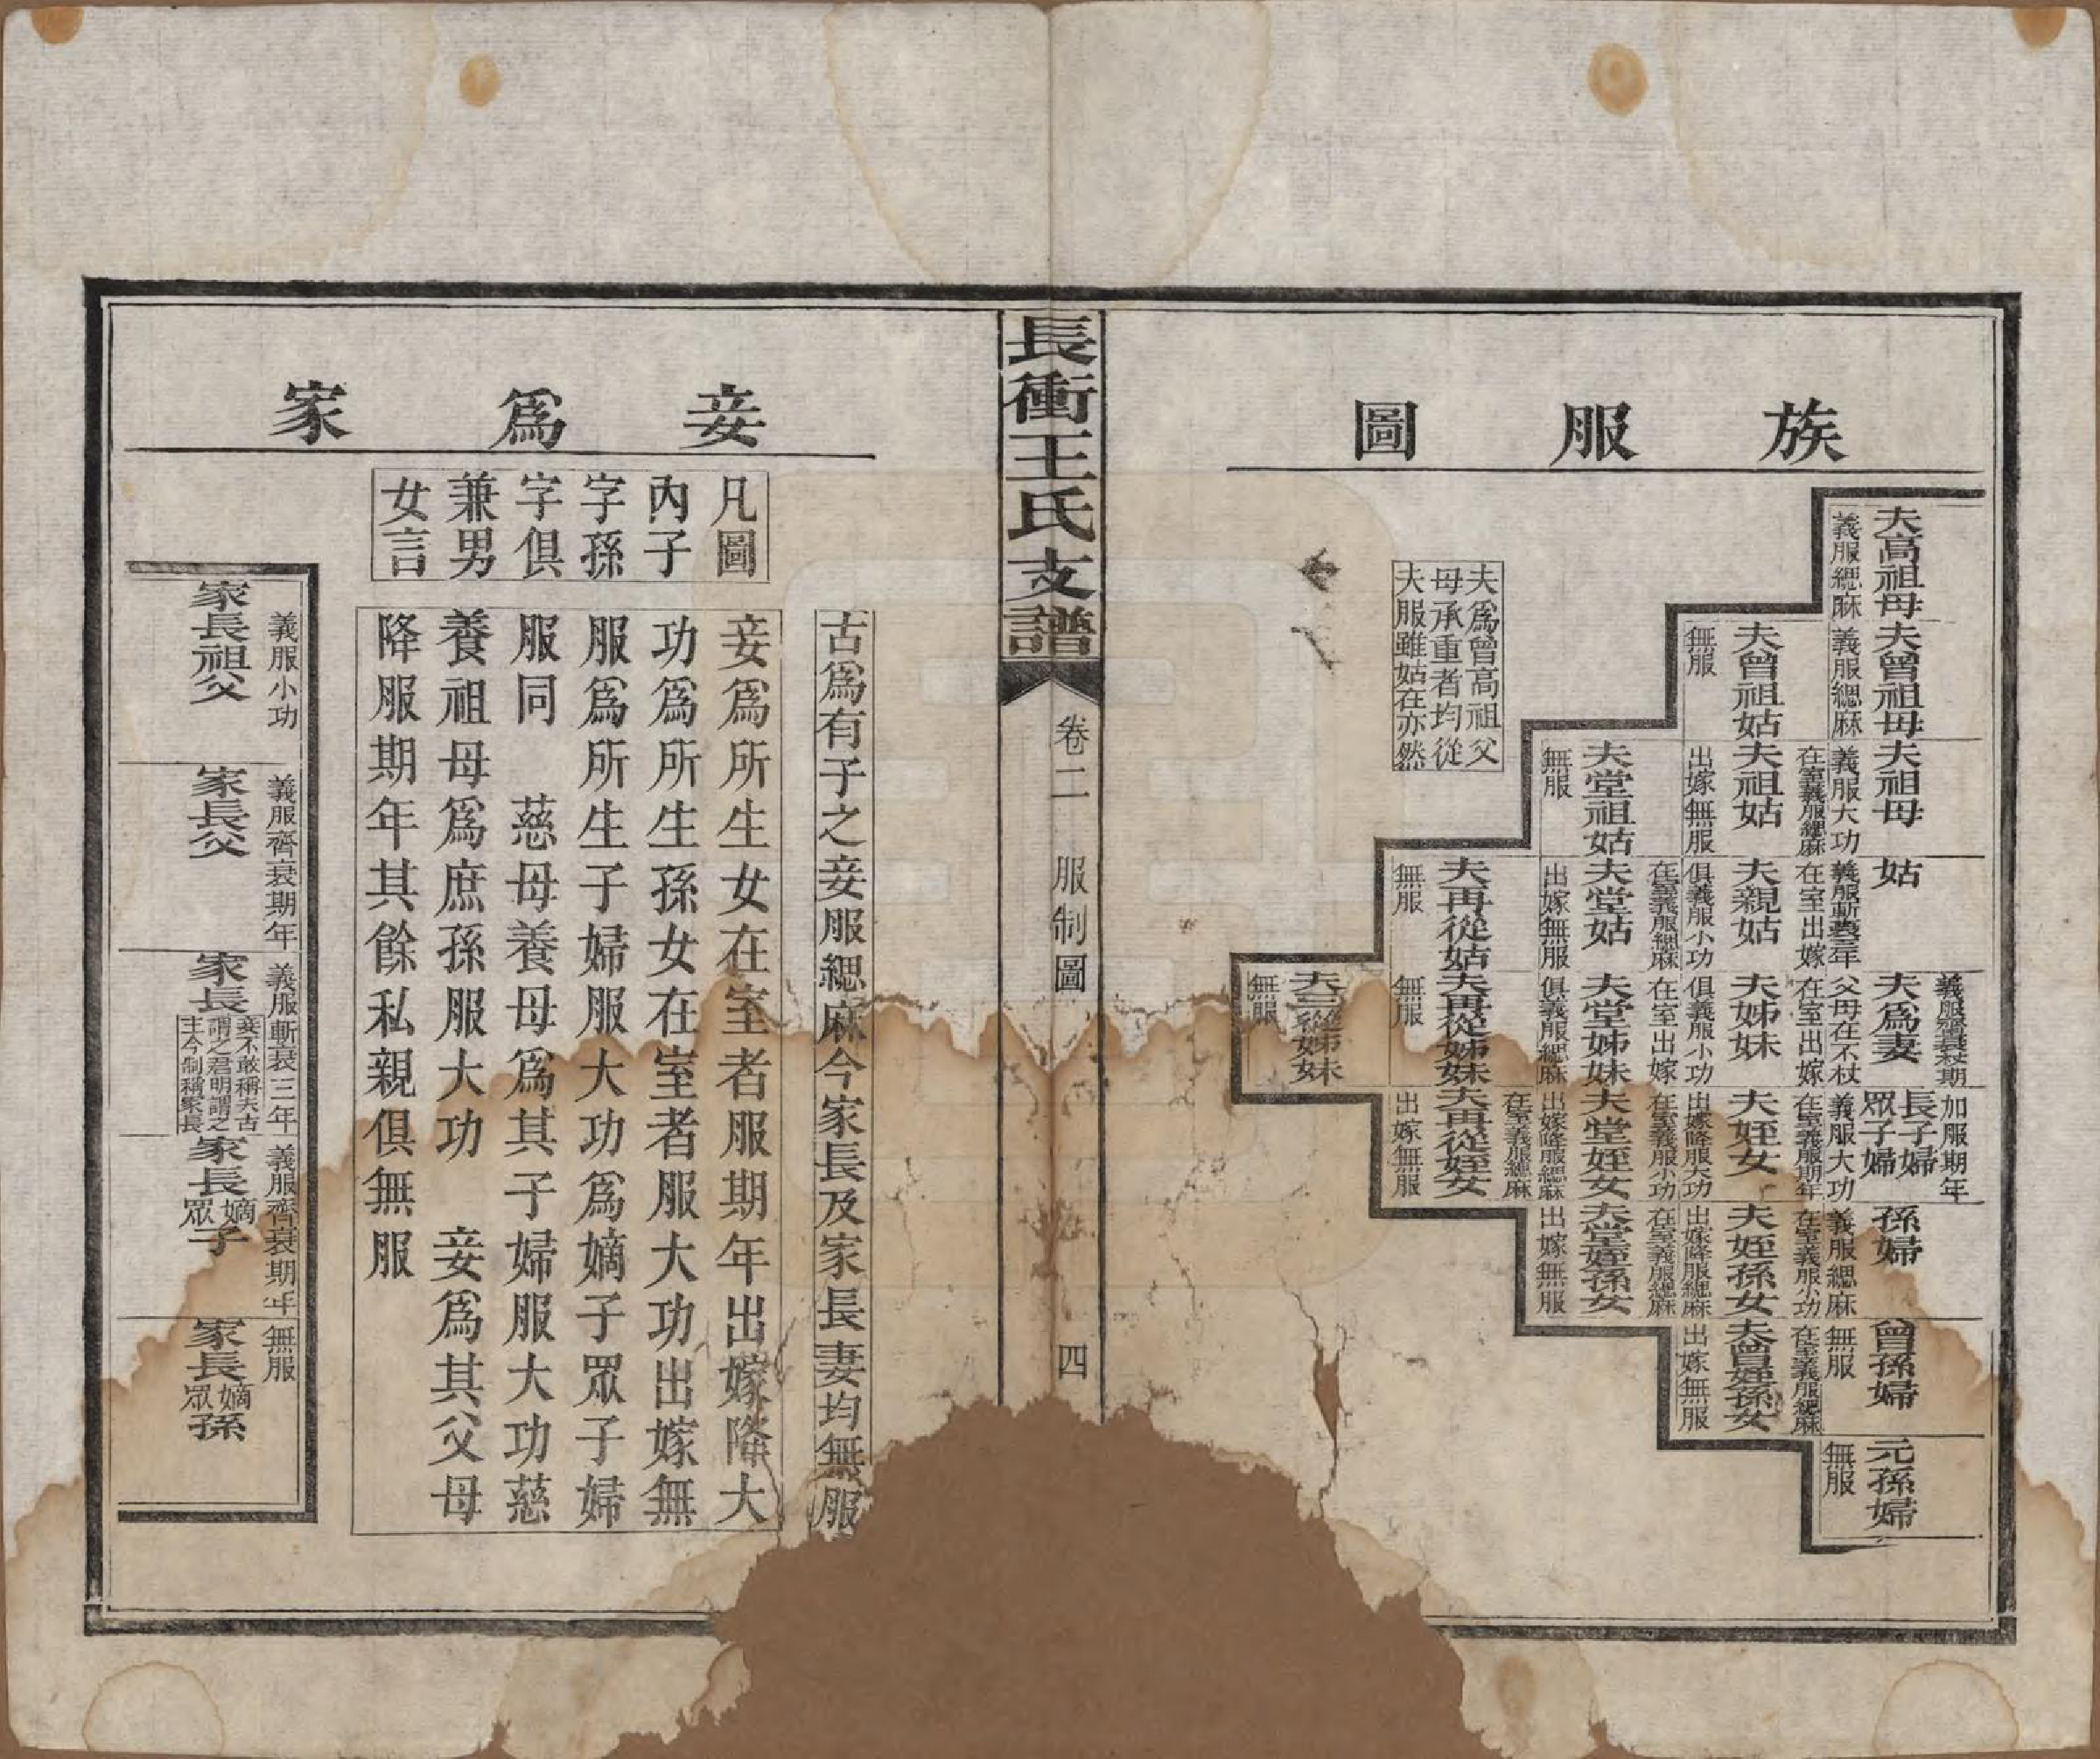 族服圖
夫高祖母
義服緦麻
夫曾祖母
義服緦麻
夫曾祖姑
無服
夫祖母
義服大功
夫祖姑
在室義服緦麻
出嫁無服
夫堂祖姑
無服
姑
義服斬衰三年
夫親姑
在室出嫁
俱義服小功
夫堂姑
在室義服緦麻
出嫁無服
夫再從姑
無服
夫為妻
義服齊衰杖期
父母在不杖
夫姊妹
在室出嫁
俱義服小功
夫堂姊妹
在室出嫁
俱義服緦麻
夫再從姊妹
無服
夫三從姊妹
無服
長子婦
加服期年
眾子婦
義服大功
夫姪女
在室義服期年
出嫁降服大功
夫堂姪女
在室義服小功
出嫁降服緦麻
夫再從姪女
在室義服緦麻
出嫁無服
孫婦
義服緦麻
夫姪孫女
在室義服小功
出嫁降服緦麻
夫堂姪孫女
在室義服緦麻
出嫁無服
曾孫婦
無服
夫曾姪孫女
在室義服緦麻
出嫁無服
元孫婦
無服
夫爲曾高祖父
母承重者均從
夫服雖姑在亦然
長衝王氏支譜
卷二 服制圖
四
妾爲家
凡圖
內子
字孫
字俱
兼男
女言
古爲有子之妾服緦麻今家長及家長妻均無服
妾爲所生女在室者服期年出嫁降大
功爲所生孫女在室者服大功出嫁無
服爲所生子婦服大功爲嫡子眾子婦
服同 慈母養母爲其子婦服大功慈
養祖母爲庶孫服大功 妾爲其父母
降服期年其餘私親俱無服
家長祖父
義服小功
家長父
義服齊衰期年
家長
義服斬衰三年
妾不敢稱夫古
謂之君明謂之
主今制稱家長
家長嫡眾子
義服齊衰期年
家長嫡眾孫
無服